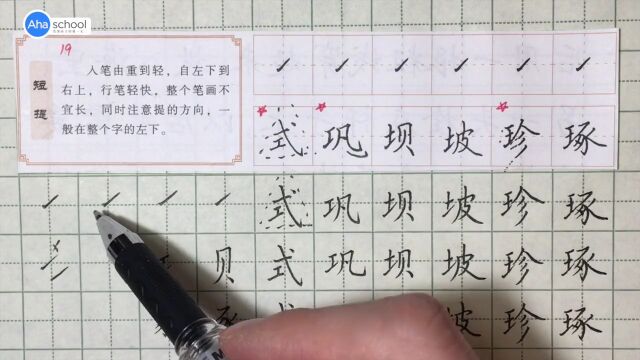 Aha school
19
短提
人笔由重到轻，自左下到
右上，行笔轻快，整个笔画不
宜长，同时注意提的方向，一
般在整个字的左下。
式 巩 坝 坡 珍 琢
式 巩 坝 坡 珍 琢
贝 式 巩 坝 坡 珍 琢
坡 珍 琢